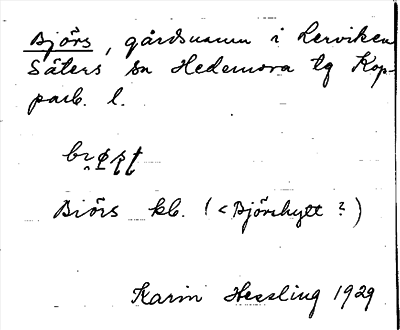 Björs, gårdsnamn i Lerviken
Säters sn Hedemora tg Kop-
parb. l.
Biörs kb. (< Björshytt ?)
Karin Hessling 1929